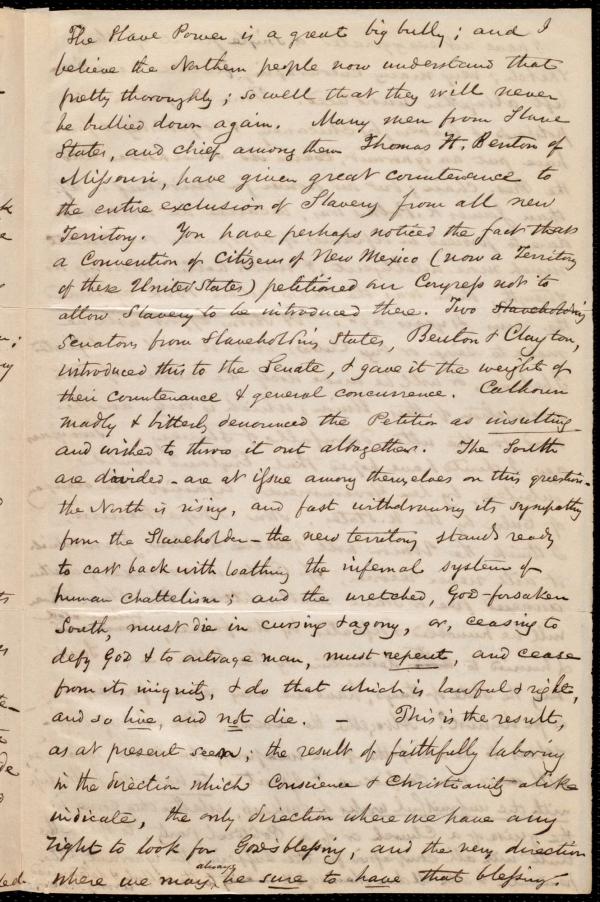 The Slave Power is a great big bully; and I
believe the Northern people now understand that
pretty thoroughly; so well that they will never
be bullied down again. Many men from Slave
States, and chief among them Thomas H. Benton of
Missouri, have given great countenance to
the entire exclusion of Slavery from all new
Territory. You have perhaps noticed the fact that
a Convention of Citizens of New Mexico (now a Territory
of these United States) petitioned our Congress not to
allow Slavery to be introduced there. Two Slaveholding
Senators from Slaveholding States, Benton & Clayton,
introduced this to the Senate, & gave it the weight of
their countenance & general concurrence. Calhoun
madly & bitterly denounced the Petition as insulting
and wished to throw it out altogether. The South
are divided – are at issue among themselves on this question –
the North is rising, and fast withdrawing its sympathy
from the Slaveholder – the new territory stands ready
to cast back with loathing the infernal system of
human chattelism; and the wretched, God-forsaken
South, must die in cursing & agony, or, ceasing to
defy God & to outrage man, must repent, and cease
from its iniquity, & do that which is lawful & right,
and so live, and not die. – This is the result,
as at present seen; the result of faithfully laboring
in the direction which Conscience & Christianity alike
indicate, the only direction where we have any
right to look for God's blessing, and the very direction
where we may always be sure to have that blessing.